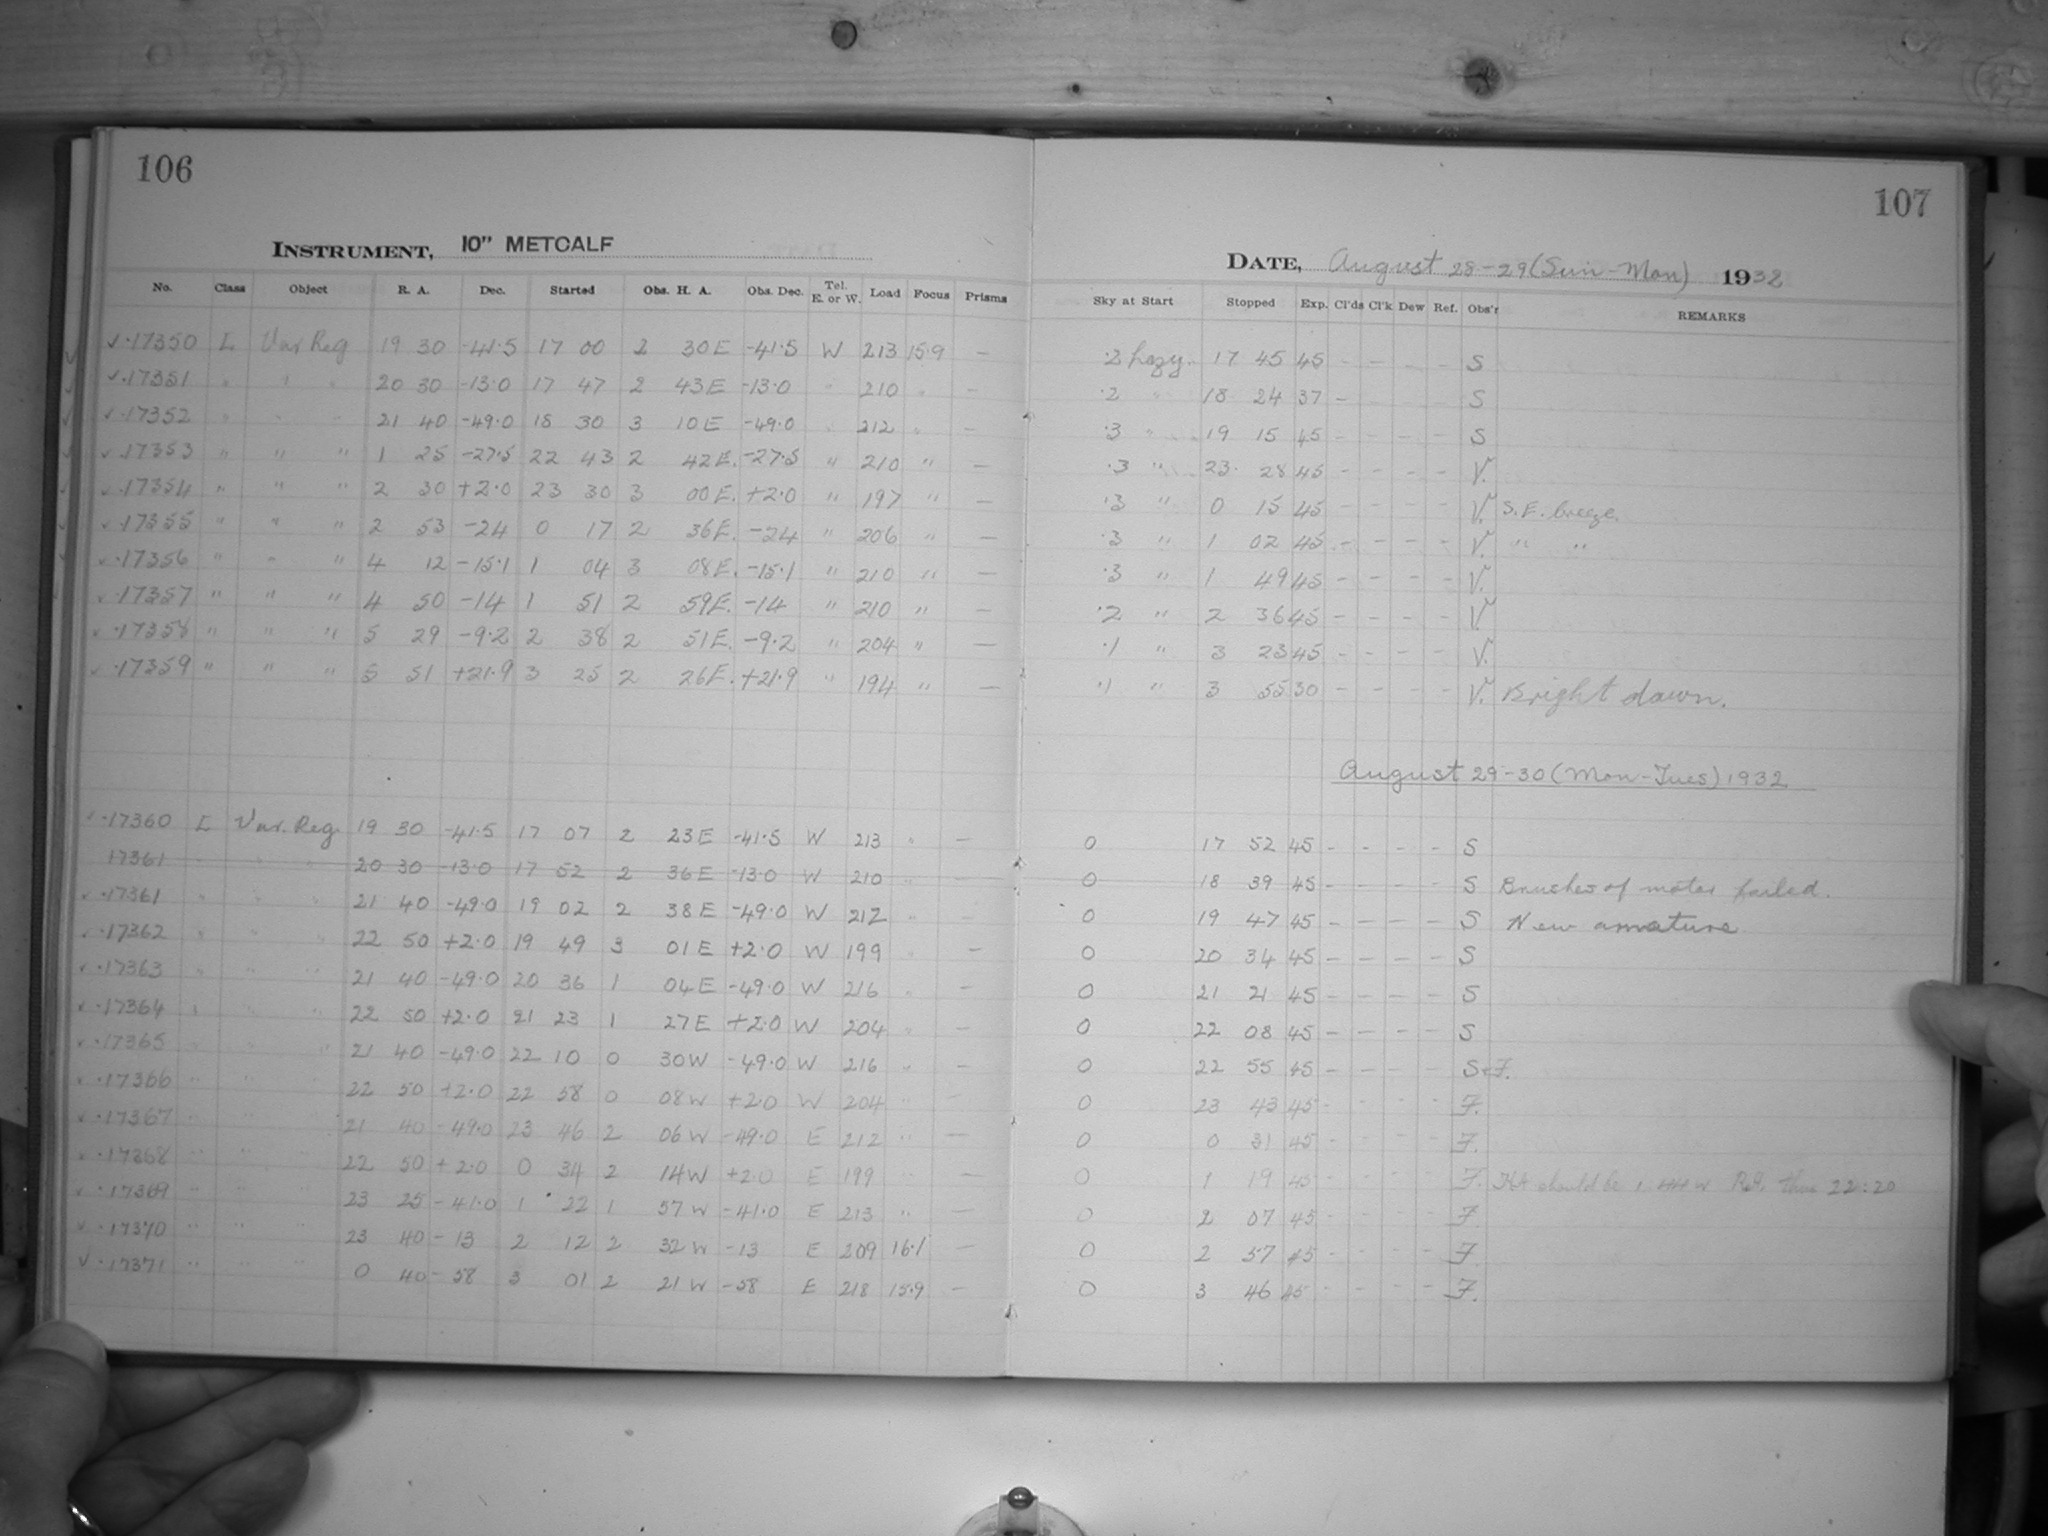 106
INSTRUMENT, 10" METCALF
No. Class Object R. A. Dec. Started Obs. H. A. Obs. Dec. Tel. E. or W. Load Focus Prisms
✓·17350 L Var Reg 19 30 -41.5 17 00 2 30E -41.5 W 213 15.9 —
✓·17351 " " " 20 30 -13.0 17 47 2 43E -13.0 " 210 " —
✓·17352 " " " 21 40 -49.0 18 30 3 10E -49.0 " 212 " —
✓·17353 " " " 1 25 -27.5 22 43 2 42E. -27.5 " 210 " —
✓·17354 " " " 2 30 +2.0 23 30 3 00E. +2.0 " 197 " —
✓·17355 " " " 2 53 -24 0 17 2 36E. -24 " 206 " —
✓·17356 " " " 4 12 -15.1 1 04 3 08E. -15.1 " 210 " —
✓·17357 " " " 4 50 -14 1 51 2 59E. -14 " 210 " —
✓·17358 " " " 5 29 -9.2 2 38 2 51E. -9.2 " 204 " —
✓·17359 " " " 5 51 +21.9 3 25 2 26E. +21.9 " 194 " —
✓·17360 L Var. Reg. 19 30 -41.5 17 07 2 23E -41.5 W 213 " —
17361 " " " 20 30 -13.0 17 52 2 36E -13.0 W 210 " —
✓·17361 " " " 21 40 -49.0 19 02 2 38E -49.0 W 212 " —
✓·17362 " " " 22 50 +2.0 19 49 3 01E +2.0 W 199 " —
✓·17363 " " " 21 40 -49.0 20 36 1 04E -49.0 W 216 " —
✓·17364 " " " 22 50 +2.0 21 23 1 27E +2.0 W 204 " —
✓·17365 " " " 21 40 -49.0 22 10 0 30W -49.0 W 216 " —
✓·17366 " " " 22 50 +2.0 22 58 0 08W +2.0 W 204 " —
✓·17367 " " " 21 40 -49.0 23 46 2 06W -49.0 E 212 " —
✓·17368 " " " 22 50 +2.0 0 34 2 14W +2.0 E 199 " —
✓·17369 " " " 23 25 -41.0 1 22 1 57W -41.0 E 213 " —
✓·17370 " " " 23 40 -13 2 12 2 32W -13 E 209 16.1 —
✓·17371 " " " 0 40 -58 3 01 2 21W -58 E 218 15.9 —
107
DATE, August 28-29 (Sun-Mon) 1932
Sky at Start Stopped Exp. Cl'ds Cl'k Dew Ref. Obs'r REMARKS
.2 hazy. 17 45 45 - - - - S
.2 " 18 24 37 - - - - S
.3 " 19 15 45 - - - - S
.3 " 23 28 45 - - - - V.
.3 " 0 15 45 - - - - V. S.E. breeze.
.3 " 1 02 45 - - - - V. " "
.3 " 1 49 45 - - - - V.
.2 " 2 36 45 - - - - V.
.1 " 3 23 45 - - - - V.
.1 " 3 55 30 - - - - V. Bright dawn.
August 29-30 (Mon-Tues) 1932
0 17 52 45 - - - - S
0 18 39 45 - - - - S Brushes of motor failed.
0 19 47 45 - - - - S New armature
0 20 34 45 - - - - S
0 21 21 45 - - - - S
0 22 08 45 - - - - S
0 22 55 45 - - - - S+F.
0 23 43 45 - - - - F.
0 0 31 45 - - - - F.
0 1 19 45 - - - - F. HA should be 1 44W R.A. thus 22:20
0 2 07 45 - - - - F.
0 2 57 45 - - - - F.
0 3 46 45 - - - - F.